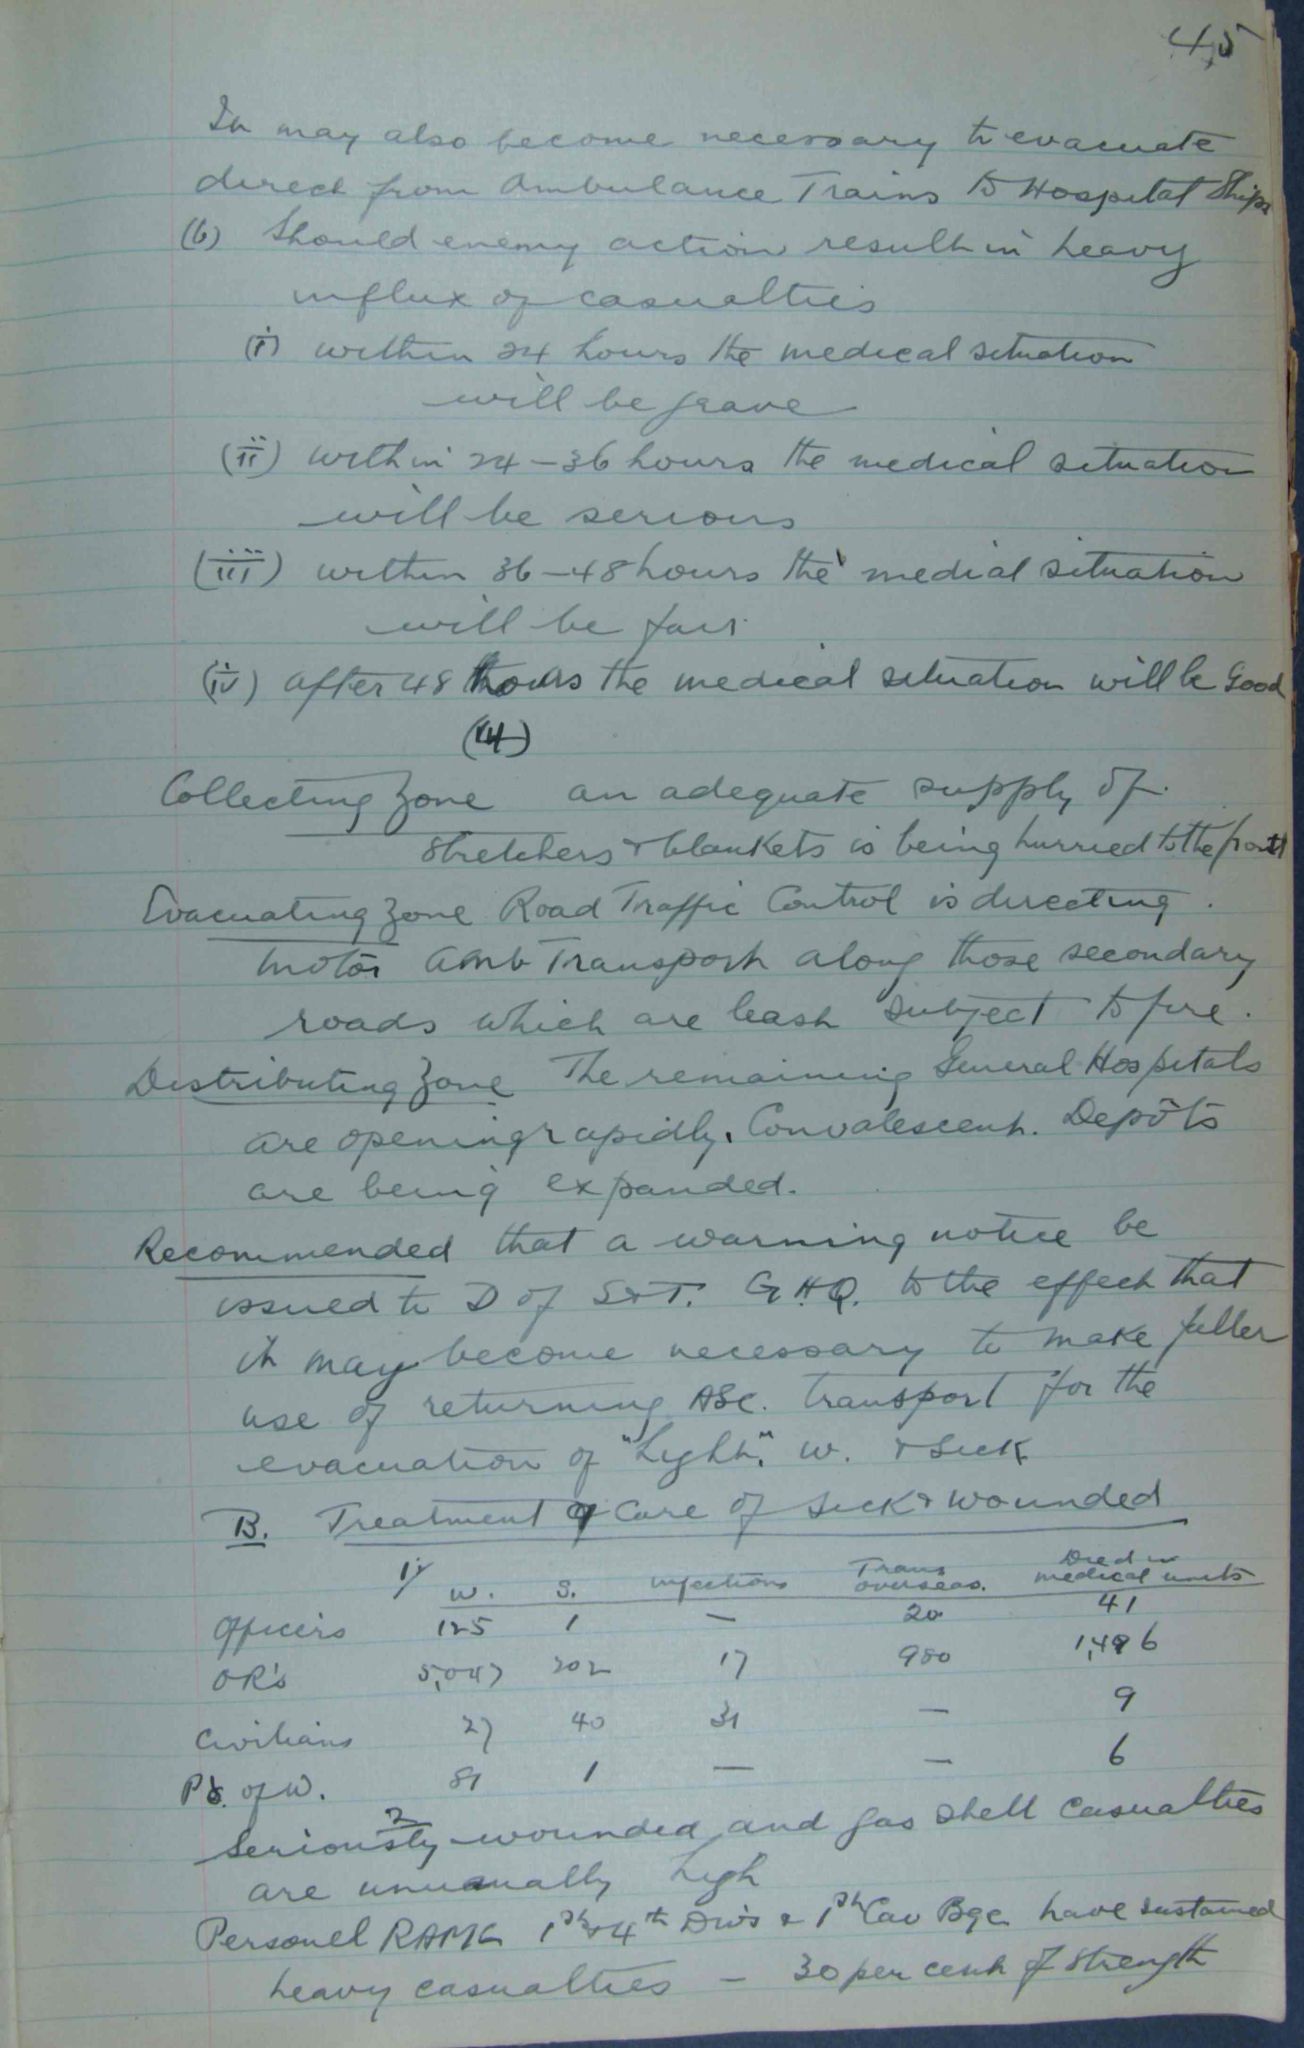 45
It may also become necessary to evacuate
direct from Ambulance Trains to Hospital Ships
(b) Should enemy action result in heavy
influx of casualties
(i) within 24 hours the medical situation
will be grave
(ii) within 24-36 hours the medical situation
will be serious
(iii) within 36-48 hours the medial situation
will be fair
(iv) after 48 hours the medical situation will be Good
(4)
Collecting Zone an adequate supply of
stretchers & blankets is being hurried to the front
Evacuating Zone Road Traffic Control is directing
motor Amb Transport along those secondary
roads which are least subject to fire.
Distributing Zone The remaining General Hospitals
are opening rapidly. Convalescent Depôts
are being expanded.
Recommended that a warning notice be
issued to D of S&T. G.H.Q. to the effect that
it may become necessary to make fuller
use of returning ASC. transport for the
evacuation of "Light" W. & Sick
B. Treatment & Care of Sick & Wounded
1/ W. S. infections Trans overseas. Died in medical units
Officers 125 1 — 20 41
OR's 5,047 202 17 980 1,496
Civilians 27 40 31 — 9
Ps. of W. 81 1 — — 6
2
Seriously wounded and gas shell casualties
are unusually high
Personel RAMC 1st & 4th Divs & 1st Cav Bge have sustained
heavy casualties — 30 per cent of strength